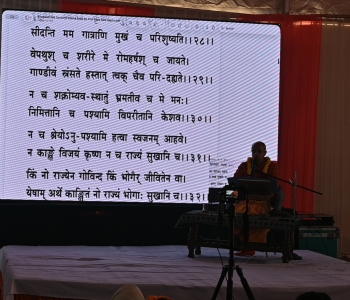 सीदन्ति मम गात्राणि मुखं च परिशुष्यति।।२८।।
वेपथुश् च शरीरे मे रोमहर्षश् च जायते।
गाण्डीवं स्रंसते हस्तात् त्वक् चैव परि-दह्यते।।२९।।
न च शक्नोम्यव-स्थातुं भ्रमतीव च मे मनः।
निमित्तानि च पश्यामि विपरीतानि केशव।।३०।।
न च श्रेयोऽनु-पश्यामि हत्वा स्वजनम् आहवे।
न काङ्क्षे विजयं कृष्ण न च राज्यं सुखानि च।।३१।।
किं नो राज्येन गोविन्द किं भोगैर् जीवितेन वा।
येषाम् अर्थे काङ्क्षितं नो राज्यं भोगाः सुखानि च।।३२।।